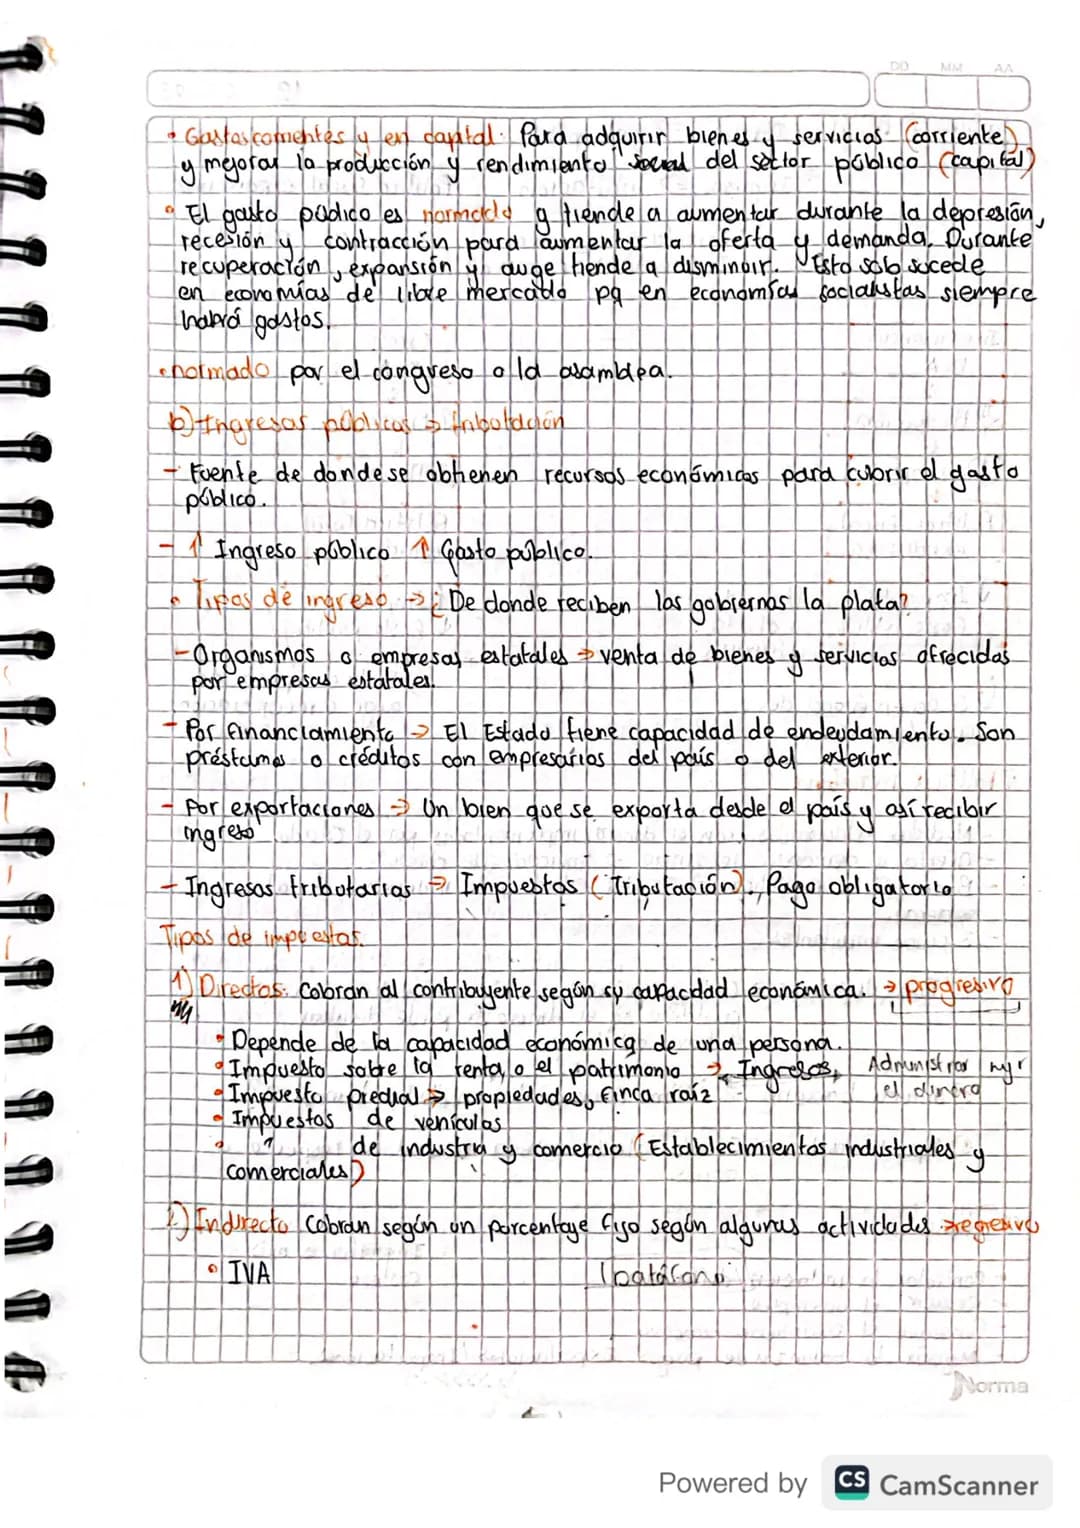 DD MM AA
• Gastos corrientes y en capital: Para adquirir bienes y servicios (corriente)
y mejorar la producción y rendimiento social del sector público (capital)
• El gasto público es normado y tiende a aumentar durante la depresión,
recesión y contracción para aumentar la oferta y demanda. Durante
recuperación, expansión y auge tiende a disminuir. Esto solo sucede
en economías de libre mercado pq en economías socialistas siempre
habrá gastos.
• normado por el congreso o la asamblea.
b) Ingresos públicos → tributación
- Fuente de donde se obtienen recursos económicos para cubrir el gasto
público.
- ↑ Ingreso público ↑ Gasto público.
• Tipos de ingreso → ¿De donde reciben los gobiernos la plata?
- Organismos o empresas estatales → venta de bienes y servicios ofrecidos
por empresas estatales.
- Por financiamiento → El Estado tiene capacidad de endeudamiento. Son
préstamos o créditos con empresarios del país o del exterior.
- Por exportaciones → Un bien que se exporta desde el país y así recibir
ingreso
- Ingresos tributarios → Impuestos (Tributación). Pago obligatorio
Tipos de impuestos.
1) Directos: Cobran al contribuyente según su capacidad económica. → progresivo
• Depende de la capacidad económica de una persona.
• Impuesto sobre la renta o el patrimonio → Ingresos, Administrar mjr
el dinero
• Impuesto predial → propiedades, finca raíz
• Impuestos de vehículos
• " de industria y comercio (Establecimientos industriales y
comerciales)
2) Indirecto Cobran según un porcentaje fijo según algunas actividades → regresivo
• IVA
Norma
Powered by CS CamScanner